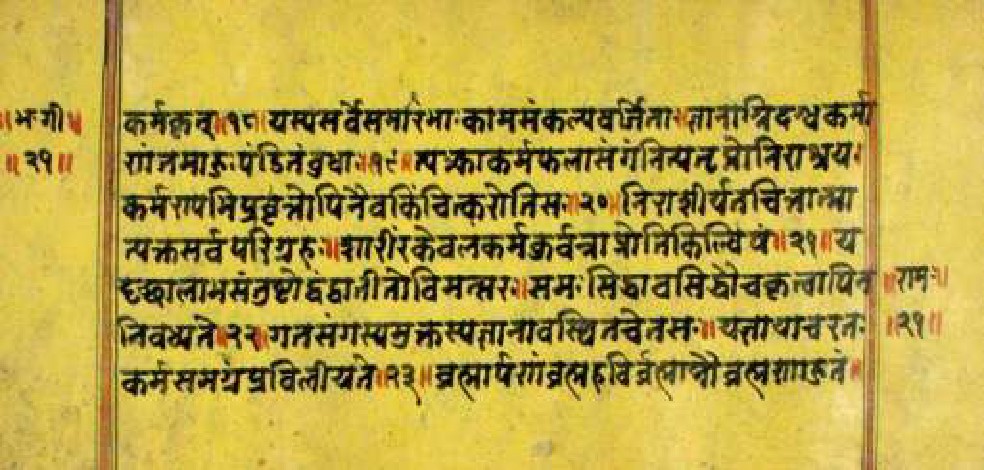 ॥भ॰गी॥
॥२१॥
कर्मकृत्॥१८॥यस्यसर्वेसमारंभाःकामसंकल्पवर्जिताः॥ज्ञानाग्निदग्धकर्मा
णंतमाहुःपंडितंबुधाः॥१९॥त्यक्त्काकर्मफलासंगंनित्यतृप्तोनिराश्रयः
कर्मण्यभिप्रवृत्तोपिनैवकिंचित्करोतिसः॥२०॥निराशीर्यतचित्तात्मा
त्यक्तसर्वपरिग्रहः॥शारीरंकेवलंकर्मकुर्वन्नाप्नोतिकिल्विषं॥२१॥य
दृच्छालाभसंतुष्टोद्वंद्वातीतोविमत्सरः॥समःसिद्धावसिद्धौचकृत्वापिन
निबध्यते॥२२॥गतसंगस्यमुक्तस्यज्ञानावस्थितचेतसः॥यज्ञायाचरतः
कर्मसमग्रंप्रविलीयते॥२३॥ब्रह्मार्पणंब्रह्महविर्ब्रह्माग्नौब्रह्मणाहुतं
॥रामः॥
॥२१॥